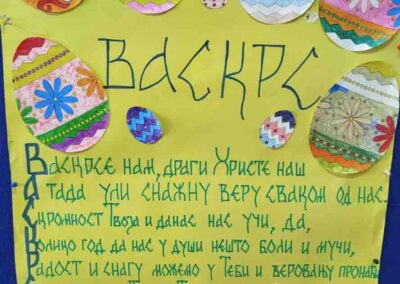 ВАСКРС
Васкрсе нам, драги Христе наш
А тада ули снажну веру сваком од нас.
Скромност Твоја и данас нас учи, да,
Колико год да нас у души нешто боли и мучи,
Радост и снагу можемо у Теби и веровању пронаћи
С